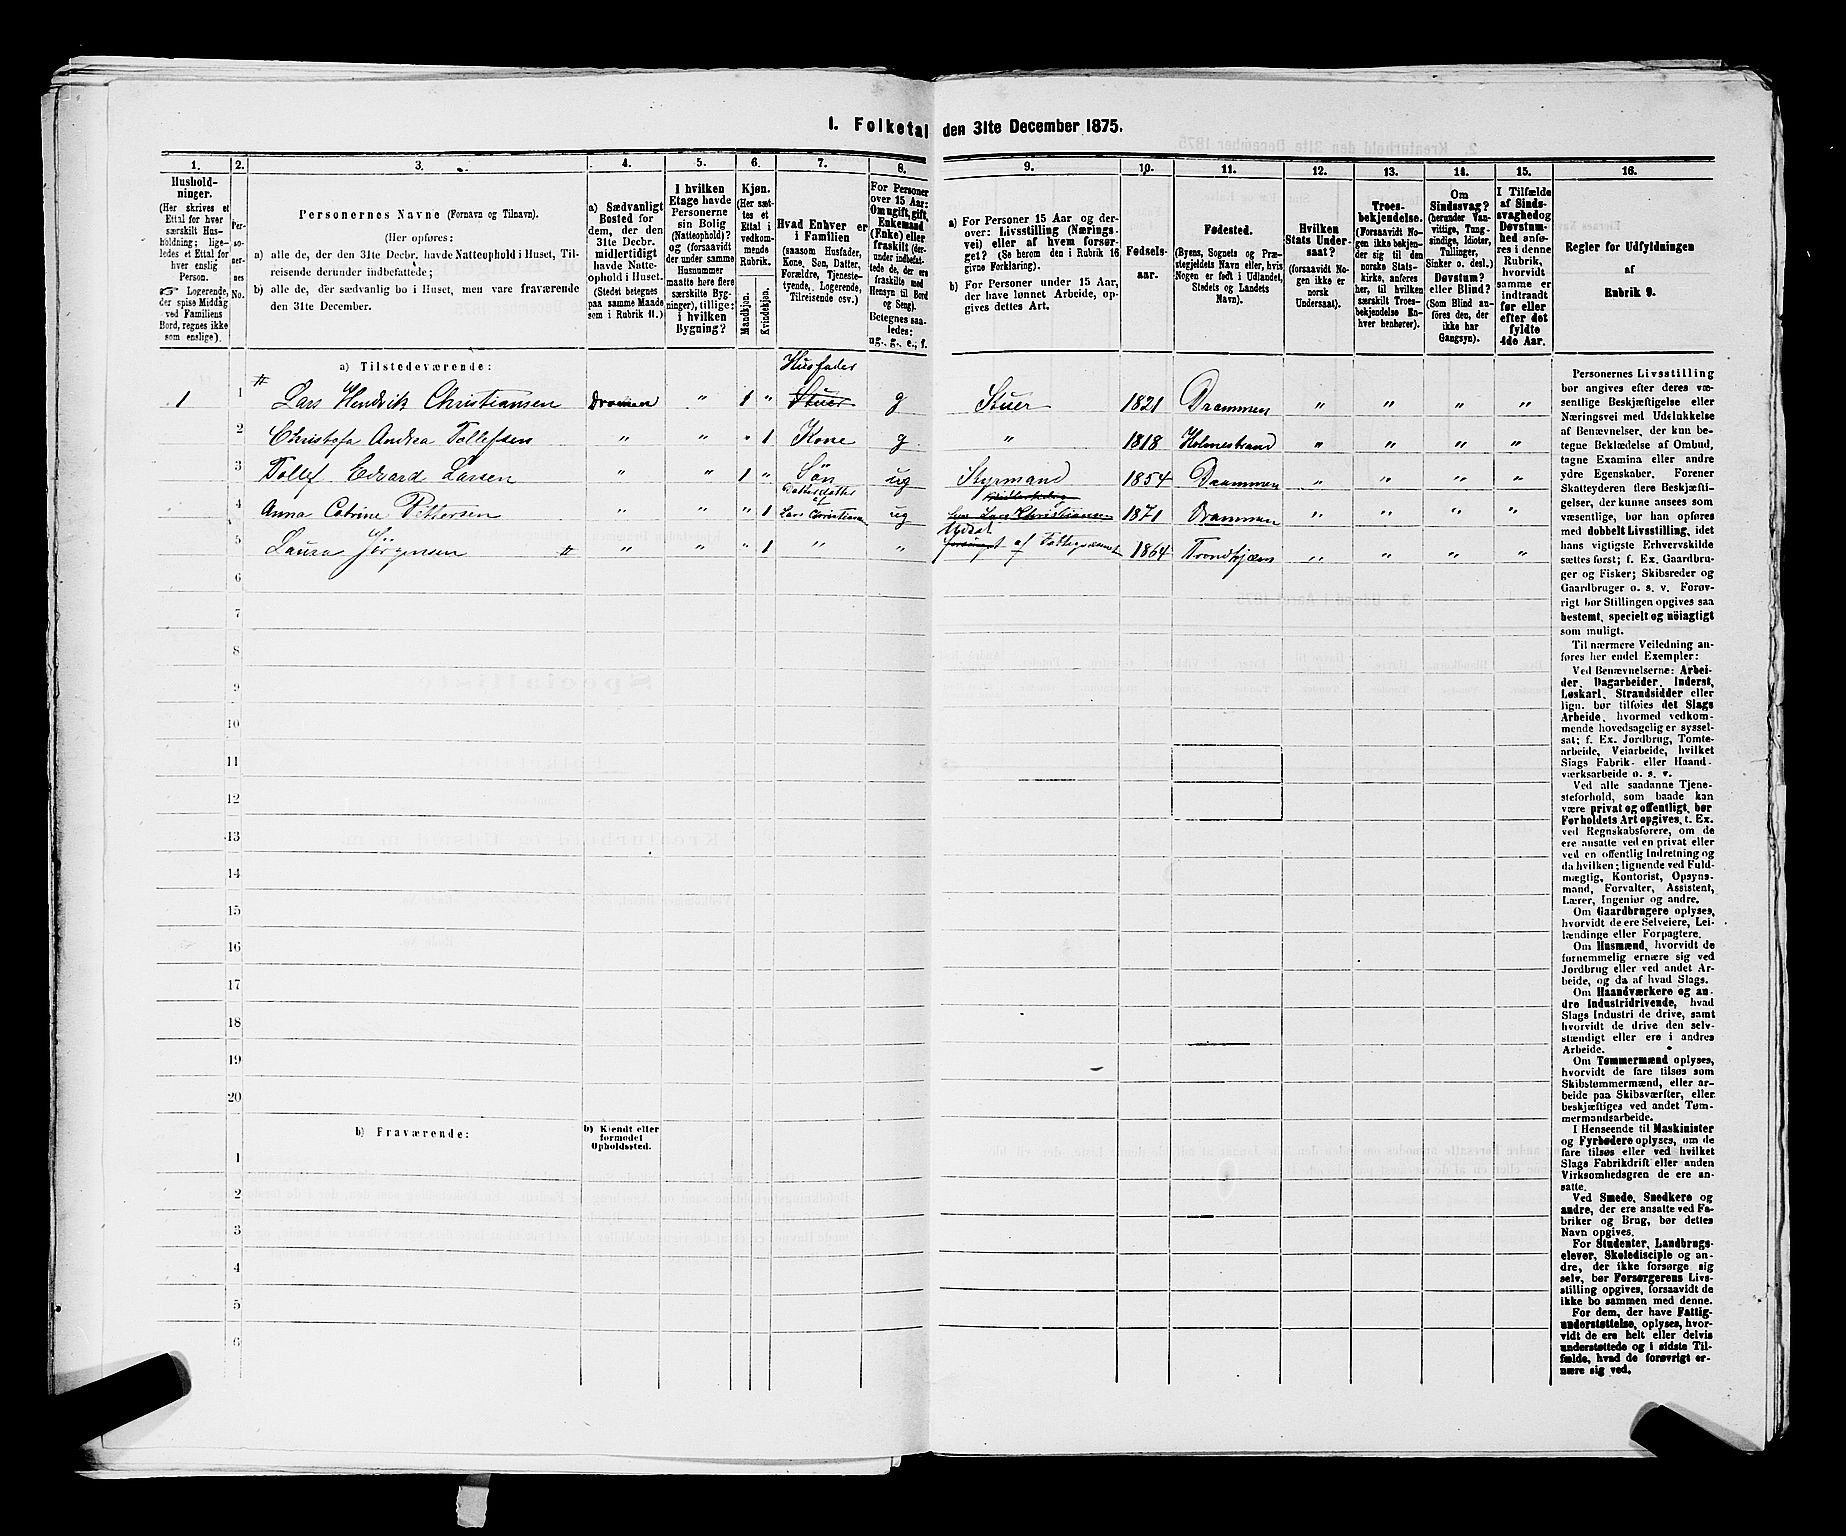 I. Folketal den 31te December 1875.
1. 2. 3. 4. 5. 6. 7. 8. 9. 10. 11. 12. 13. 14. 15. 16.
Hushold-
ninger.
(Her skrives et
Ettal for hver
særskilt Hus-
holdning; lige-
ledes et Ettal for
hver enslig
Person.
☞ Logerende,
der spise Middag
ved Familiens
Bord, regnes ikke
som enslige).
Per-
so-
ner-
nes
No.
Personernes Navne (Fornavn og Tilnavn).
(Her opføres:
a) alle de, der den 31te Decbr. havde Natteophold i Huset, Til-
reisende derunder indbefattede;
b) alle de, der sædvanlig bo i Huset, men vare fraværende
den 31te December.
a) Sædvanligt
Bosted for
dem, der den
31te Decbr.
midlertidigt
havde Natte-
ophold i Huset.
(Stedet betegnes
paa samme Maade
som i Rubrik 11.)
I hvilken
Etage havde
Personerne
sin Bolig
(Natteophold)?
og (forsaavidt
der under samme
Husnummer
maatte høre flere
særskilte Byg-
ninger), tillige:
i hvilken
Bygning?
Kjøn.
(Her sæt-
tes et
Ettal i
vedkom-
mende
Rubrik.
Mandkjøn.
Kvindekjøn.
Hvad Enhver er
i Familien
(saasom Husfader,
Kone, Søn, Datter,
Forældre, Tjeneste-
tyende, Logerende,
Tilreisende osv.)
For Personer
over 15 Aar:
Om ugift, gift,
Enkemand
(Enke) eller
fraskilt (der-
under indbefat-
tede de, der ere
fraskilte med
Hensyn til Bord
og Seng).
Betegnes saa-
ledes:
ug., g., e., f.
a) For Personer 15 Aar og der-
over: Livsstilling (Nærings-
vei) eller af hvem forsør-
get? (Se herom den i Rubrik 16
givne Forklaring).
b) For Personer under 15 Aar,
der have lønnet Arbeide, op-
gives dettes Art.
Fødsels-
aar.
Fødested.
(Byens, Sognets og Præ-
stegjeldets Navn eller, hvis
Nogen er født i Udlandet,
Stedets og Landets
Navn).
Hvilken
Stats Under-
saat?
(forsaavidt No-
gen ikke er
norsk
Undersaat).
Troes-
bekjendelse.
(Forsaavidt No-
gen ikke bekjen-
der sig til den
norske Stats-
kirke, anføres
her, til hvilken
særskilt Troes-
bekjendelse En-
hver henhører).
Om
Sindssvag?
(herunder Van-
vittige, Tung-
sindige, Idioter,
Tullinger,
Sinker o. desl.)
Døvstum?
eller Blind?
(Som Blind an-
føres den, der
ikke har
Gangsyn).
I Tilfælde
af Sinds-
svaghed og
Døvstum-
hed anfø-
res i denne
Rubrik,
hvorvidt
samme er
indtraadt
før eller
efter det
fyldte
4de Aar.
Regler for Udfyldningen
af
Rubrik 9.
a) Tilstedeværende:
Husfader
1 1 Lars Hendrik Christiansen Dramen „ 1 „ Stuer g Stuer 1821 Drammen „ „ „ „
2 Christofa Andrea Tollefsen „ „ „ 1 Kone g „ 1818 Holmestrand „ „ „ „
3 Tollef Edvard Larsen „ „ 1 „ Søn ug Styrmand 1854 Drammen „ „ „ „
Datterdatter
af
4 Anna Catrine Pettersen „ „ „ 1 Lars Christians ug Lars Christiansen 1871 Drammen „ „ „ „
5 Laura Jörgensen „ „ „ 1 „ „ forsørget af Fattigvæsenet 1864 Trondhjem „ „ „ „
6
7
8
9
10
11
12
13
14
15
16
17
18
19
20
b) Fraværende:
b) Kjendt eller
formodet
Opholdssted.
1
2
3
4
5
6
Personernes Livsstilling
bør angives efter deres væ-
sentlige Beskjæftigelse eller
Næringsvei med Udelukkelse
af Benævnelser, der kun be-
tegne Beklædelse af Ombud,
tagne Examina eller andre
ydre Egenskaber. Forener
Skatteyderen flere Beskjæfti-
gelser, der kunne ansees som
væsentlige, bør han opføres
med dobbelt Livsstilling, idet
hans vigtigste Erhvervskilde
sættes først; f. Ex. Gaardbru-
ger og Fisker; Skibsreder og
Gaardbruger o. s. v. Forøv-
rigt bør Stillingen opgives saa
bestemt, specielt og nöiagtigt
som muligt.
Til nærmere Veiledning an-
føres her endel Exempler:
Ved Benævnelserne: Arbei-
der, Dagarbeider, Inderst,
Løskarl, Strandsidder eller
lign. bør tilføies det Slags
Arbeide, hvormed vedkom-
mende hovedsagelig er syssel-
sat; f. Ex. Jordbrug, Tomte-
arbeide, Veiarbeide, hvilket
Slags Fabrik- eller Haand-
værksarbeide o. s. v.
Ved alle saadanne Tjene-
steforhold, som baade kan
være privat og offentligt, bør
Forholdets Art opgives, t. Ex.
ved Regnskabsførere, om de
ere ansatte ved en privat eller
ved en offentlig Indretning og
da hvilken; lignende ved Fuld-
mægtig, Kontorist, Opsyns-
mand, Forvalter, Assistent,
Lærer, Ingeniør og andre.
Om Gaardbrugere oplyses,
hvorvidt de ere Selveiere, Lei-
lændinge eller Forpagtere.
Om Husmænd, hvorvidt de
fornemmelig ernære sig ved
Jordbrug eller ved andet Ar-
beide, og da af hvad Slags.
Om Haandværkere og an-
dre Industridrivende, hvad
Slags Industri de drive, samt
hvorvidt de drive den selv-
stændigt eller ere i andres
Arbeide.
Om Tømmermænd oplyses,
hvorvidt de fare tilsøs som
Skibstømmermænd, eller ar-
beide paa Skibsværfter, eller
beskjæftiges ved andet Tøm-
mermandsarbeide.
I Henseende til Maskinister
og Fyrbødere oplyses, om de
fare tilsøs eller ved hvilket
Slags Fabrikdrift eller anden
Virksomhedsgren de ere an-
satte.
Ved Smede, Snedkere og
andre, der ere ansatte ved Fa-
briker og Brug, bør dettes
Navn opgives.
For Studenter, Landbrugs-
elever, Skoledisciple og an-
dre, der ikke forsørge sig
selv, bør Forsørgerens Livs-
stilling opgives, forsaavidt de
ikke bo sammen med denne.
For dem, der have Fattig-
understøttelse, oplyses, hvor-
vidt de ere helt eller delvis
understøttede og i sidste Til-
fælde, hvad de forøvrigt er-
nære sig ved.